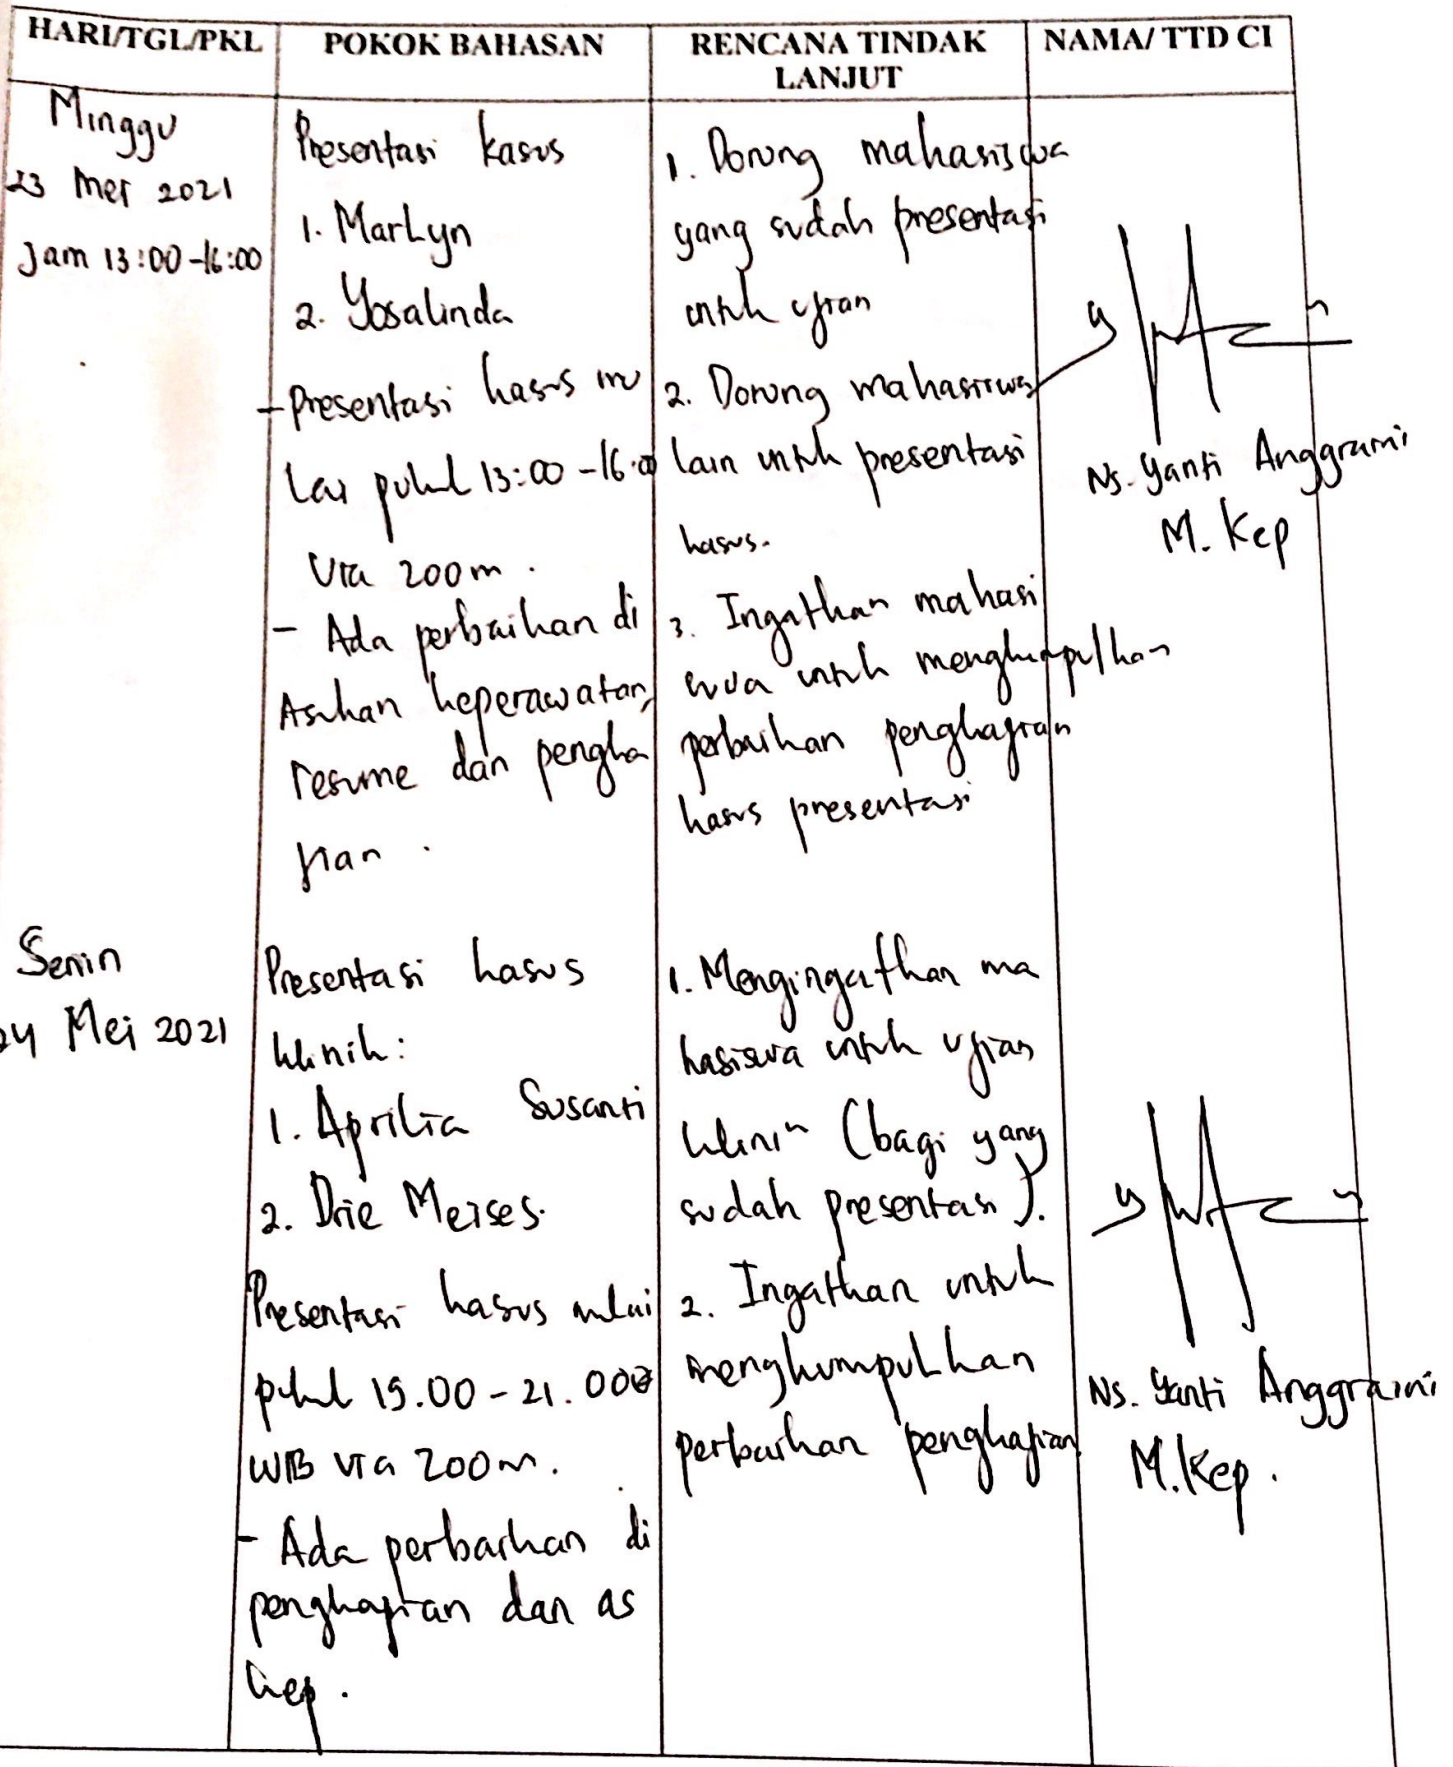 HARI/TGL/PKL
POKOK BAHASAN
RENCANA TINDAK
LANJUT
NAMA/ TTD CI
Minggu
23 Mei 2021
Jam 13:00-16:00
Presentasi kasus
1. Marlyn
2. Yosalinda
- Presentasi kasus mu
lai pukul 13:00 - 16:00
Via zoom.
- Ada perbaikan di
Asuhan keperawatan,
resume dan pengka
jian.
1. Dorong mahasiswa
yang sudah presentasi
untuk ujian
2. Dorong mahasiswa
lain untuk presentasi
kasus.
3. Ingatkan mahasi
swa untuk mengkumpulkan
perbaikan pengkajian
kasus presentasi
Ns. Yanti Anggraini
M. Kep
Senin
24 Mei 2021
Presentasi kasus
klinik:
1. Aprilia Susanti
2. Drie Meises.
Presentasi kasus mulai
pukul 15.00 - 21.00
WIB via zoom.
- Ada perbaikan di
pengkajian dan as
kep.
1. Mengingatkan ma
hasiswa untuk ujian
klinik (bagi yang
sudah presentasi).
2. Ingatkan untuk
mengkumpulkan
perbaikan pengkajian
Ns. Yanti Anggraini
M.Kep.